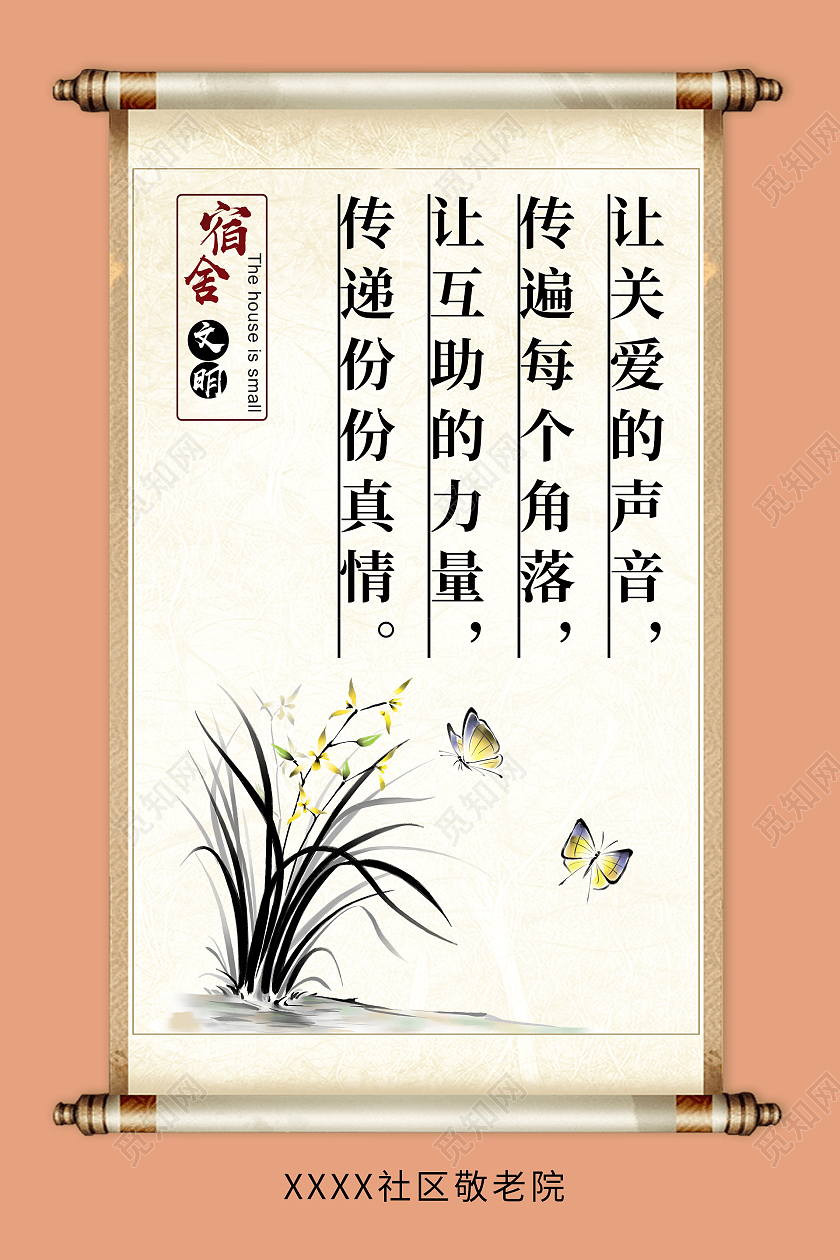 让关爱的声音，
传遍每个角落，
让互助的力量，
传递份份真情。
宿舍
文明
The house is small
XXXX社区敬老院
觅知网